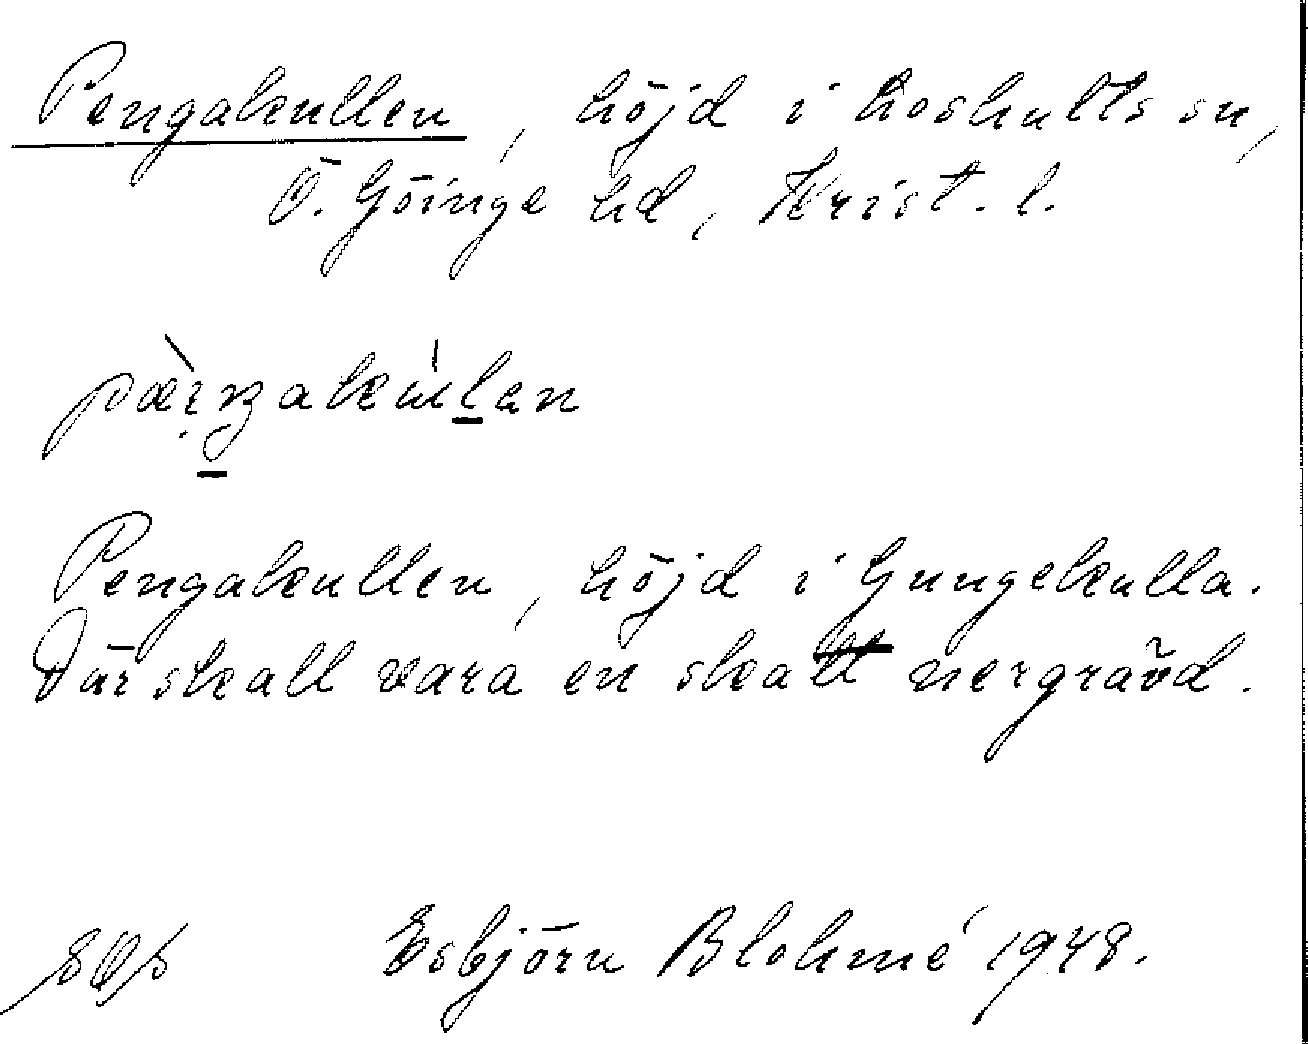 Pengakullen, höjd i Loshults sn,
Ö. Göinge hd, Krist. l.
Pengakullen, höjd i Gungekulla.
Där skall vara en skatt nergrävd.
Esbjörn Blohmé 1948.